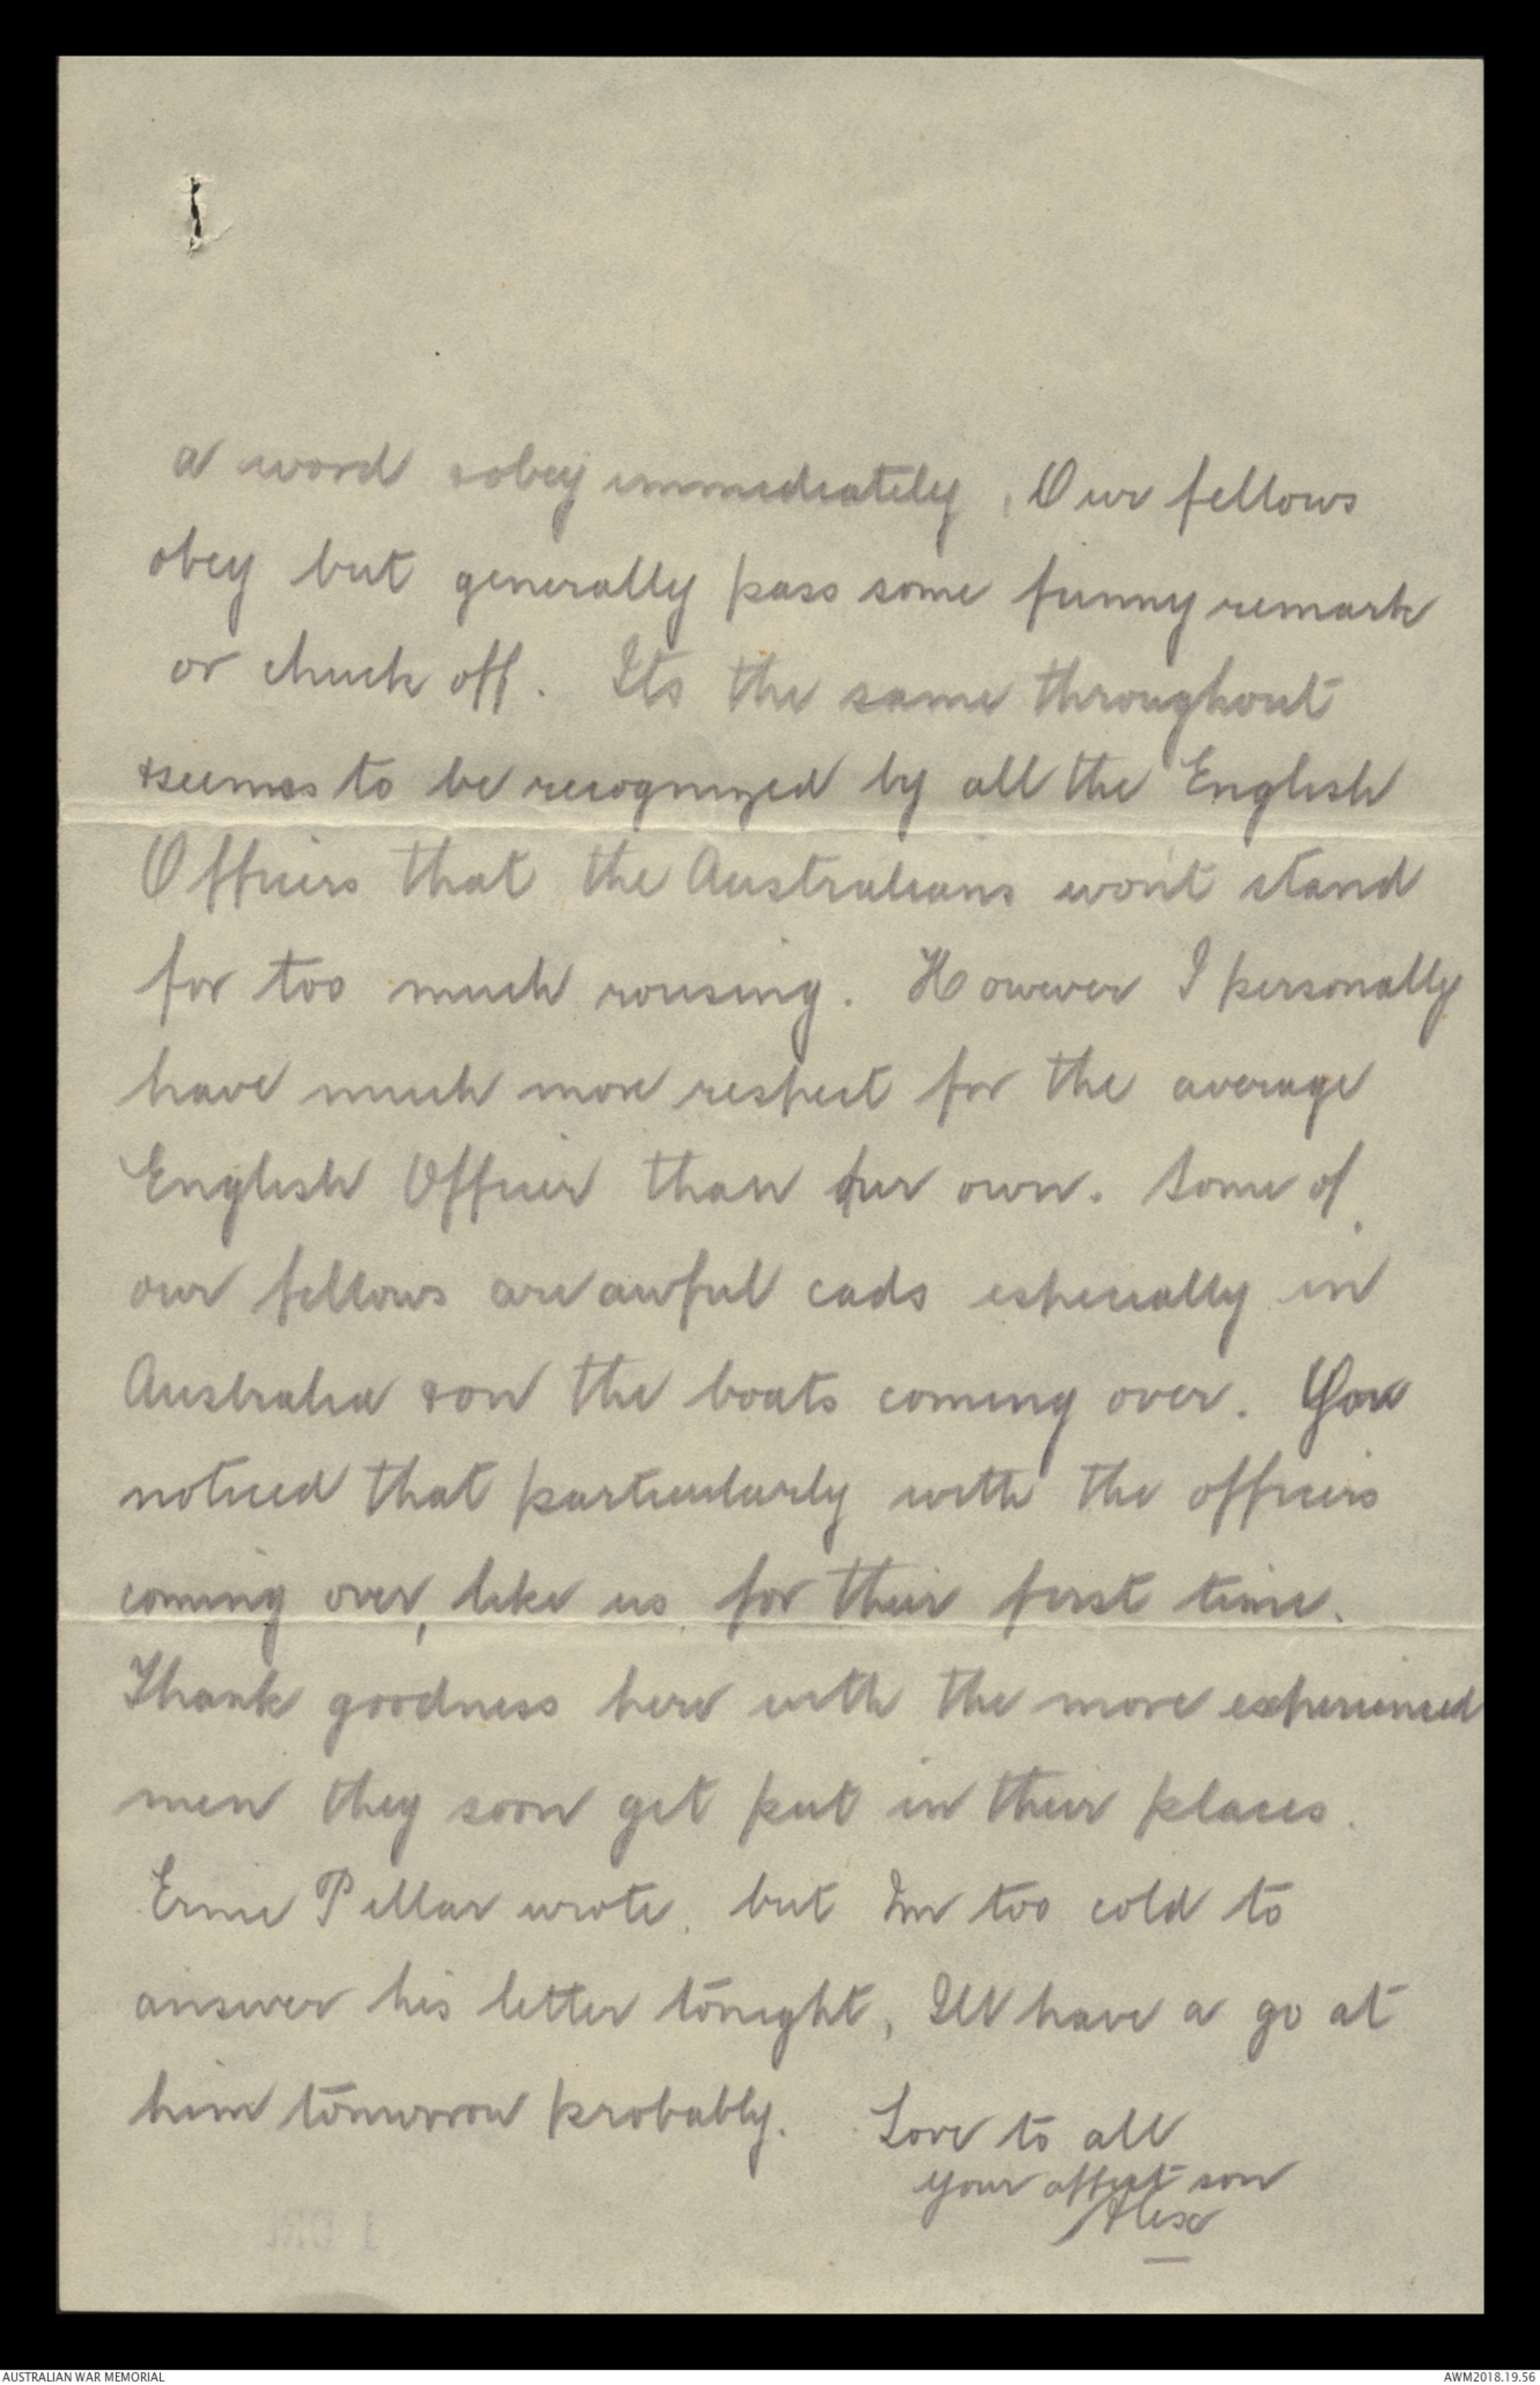 a word & obey immediately. Our fellows
obey but generally pass some funny remark
or chuck off. Its the same throughout
& seems to be recognized by all the English
Officers that the Australians won't stand
for too much rousing. However I personally
have much more respect for the average
English Officer than our own. Some of
our fellows are awful cads especially in
Australia & on the boats coming over. You
noticed that particularly with the officers
coming over, like us, for their first time.
Thank goodness here with the more experienced
men they soon get put in their places.
Ernie Pellar wrote, but Im too cold to
answer his letter tonight, Ill have a go at
him tomorrow probably.
Love to all
your affect son
Alex
AUSTRALIAN WAR MEMORIAL
AWM2018.19.56